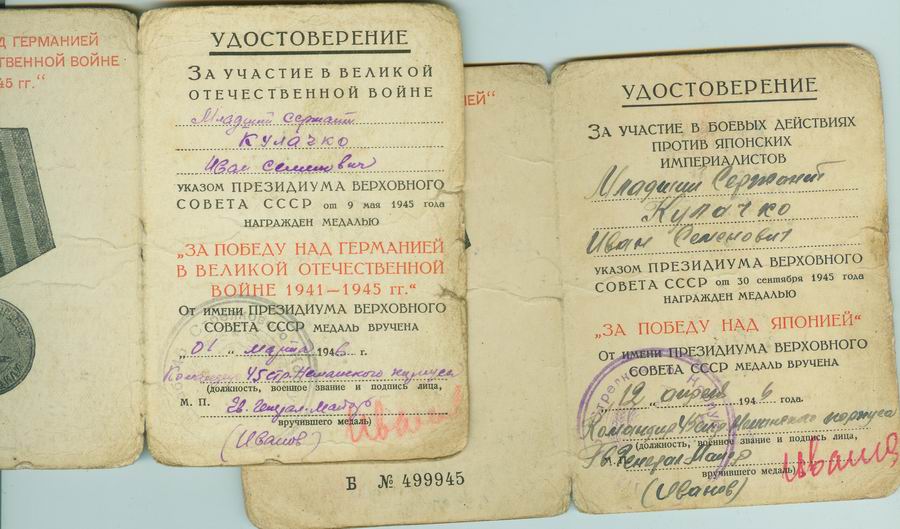 Д ГЕРМАНИЕЙ
СТВЕННОЙ ВОЙНЕ
45 гг.“
УДОСТОВЕРЕНИЕ
ЗА УЧАСТИЕ В ВЕЛИКОЙ
ОТЕЧЕСТВЕННОЙ ВОЙНЕ
Младший сержант
Кулачко
Иван Семенович
УКАЗОМ ПРЕЗИДИУМА ВЕРХОВНОГО
СОВЕТА СССР от 9 мая 1945 года
НАГРАЖДЕН МЕДАЛЬЮ
„ЗА ПОБЕДУ НАД ГЕРМАНИЕЙ
В ВЕЛИКОЙ ОТЕЧЕСТВЕННОЙ
ВОЙНЕ 1941—1945 гг.“
От имени ПРЕЗИДИУМА ВЕРХОВНОГО
СОВЕТА СССР МЕДАЛЬ ВРУЧЕНА
„01“ марта 1946 г.
Командир 45 стр. Неманского корпуса
(должность, военное звание и подпись лица,
М. П. Гв. Генерал-Майор
вручившего медаль)
(Иванов)
ИЕЙ“
Б № 499945
УДОСТОВЕРЕНИЕ
ЗА УЧАСТИЕ В БОЕВЫХ ДЕЙСТВИЯХ
ПРОТИВ ЯПОНСКИХ
ИМПЕРИАЛИСТОВ
Младший Сержант
Кулачко
Иван Семенович
УКАЗОМ ПРЕЗИДИУМА ВЕРХОВНОГО
СОВЕТА СССР от 30 сентября 1945 года
НАГРАЖДЕН МЕДАЛЬЮ
„ЗА ПОБЕДУ НАД ЯПОНИЕЙ“
От имени ПРЕЗИДИУМА ВЕРХОВНОГО
СОВЕТА СССР МЕДАЛЬ ВРУЧЕНА
„12“ апреля 1946 года.
Командир 45 стр Неманского корпуса
(должность, военное звание и подпись лица,
М. П. Гв. Генерал Майор
вручившего медаль)
(Иванов)